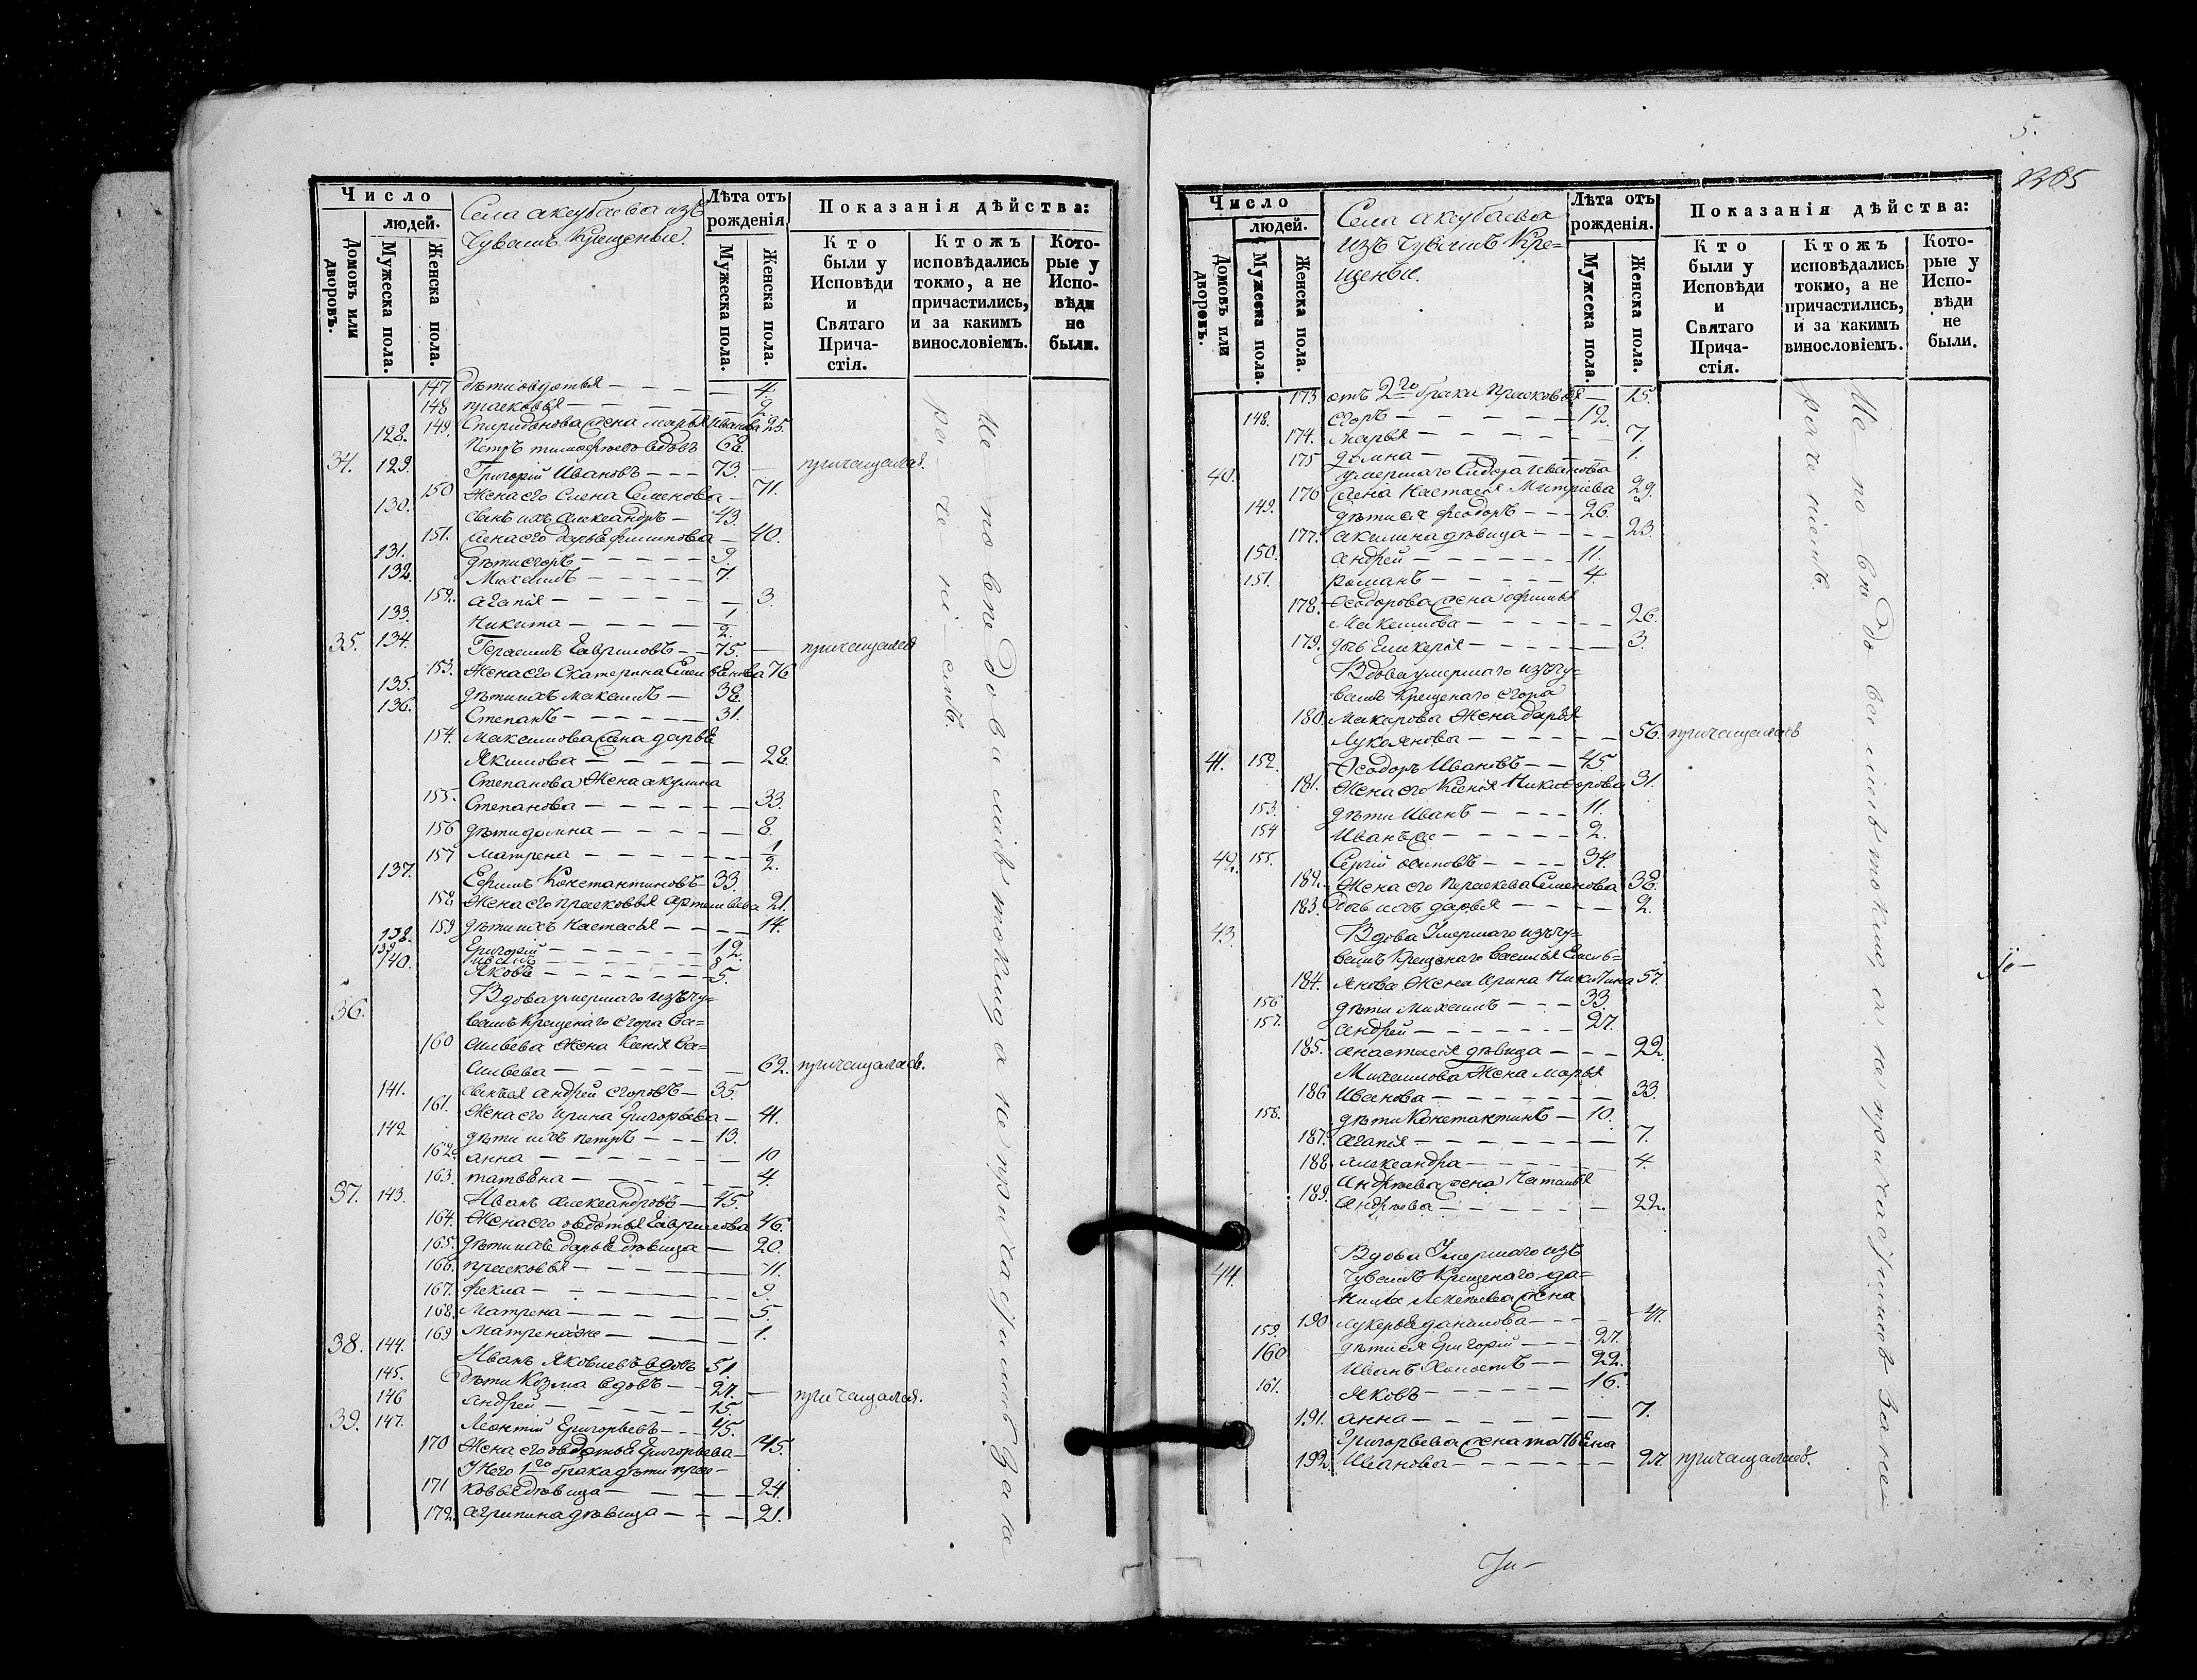 Число
людей.
Домовъ или дворовъ.
Мужеска пола.
Женска пола.
Села Аксубаева изъ
Чувашъ Крещеные.
Лѣта отъ рожденія
Мужеска пола.
Женска пола.
Показанія дѣйства:
Кто были у Исповѣди и Святаго Прича-стія.
Ктожъ исповѣдались токмо, а не причастились, и за какимъ винословіемъ.
Кото-рые у Испо-вѣди не были.
147 дѣти овдотья — 4.
148 прасковья — 2.
149. Спиридонова жена марья Иванова 25.
128. Петръ тимофѣевъ вдовъ 68.
34. 129. Григорій Ивановъ — 73. — причащался.
150 Жена его Елена Семенова — 71.
130. сынъ ихъ Александръ — 43.
151. жена его дарья филипова — 40.
131. дѣти егоръ — 9.
132. Михаилъ — 7.
152. агапія — 3.
133. Никита — 1/2.
35. 134. Герасимъ Гавриловъ — 75. — причащался
153. Жена его Екатерина Емельянова 76
135. дѣти ихъ максимъ — 38.
136. Степанъ — 31.
154. Максимова жена дарья
Якимова — 28.
Степанова Жена акулина
155. Степанова — 33.
156 дѣти домна — 8.
157 Матрена — 1/2.
137. Ефимъ Константиновъ — 33.
158 Жена его прасковья артемьева 21.
159 дѣти ихъ настасья — 14.
138. Григорій — 12.
139 — 8
140. Яковъ — 5.
36. Вдова умершаго изъ чу=
вашъ крещенаго егора Ва=
160 сильева Жена Ксенія Ва=
сильева — 62. причащалась.
141. сынъ ея андрей егоровъ — 35.
161. Жена его Ирина Григорьева — 41.
142 дѣти ихъ петръ — 13.
162. анна — 10
163. татьяна — 4.
37. 143. Иванъ Александровъ — 45.
164. Жена его овдотья Гаврилова 46.
165. дѣти ихъ дарья дѣвица — 20.
166. прасковья — 11.
167. фекла — 9.
168. Матрена — 5.
169 Матрена же — 1.
38. 144. Иванъ Яковлевъ вдовъ 51.
145. дѣти Козма вдовъ — 27. — причащался.
146 андрей — 15.
39. 147. Леонтій Григорьевъ — 45.
170 Жена его овдотья Григорьева — 45.
У Него 1го брака дѣти прас-
171 ковья дѣвица — 24.
172. агрипина дѣвица — 21.
Не по
токмо а не
5.
1385
Число
людей.
Домовъ или дворовъ.
Мужеска пола.
Женска пола.
Села аксубаева
изъ Чувашъ Кре=
щеные.
Лѣта отъ рожденія.
Мужеска пола.
Женска пола.
Показанія дѣйства:
Кто были у Исповѣди и Святаго Прича-стія.
Ктожъ исповѣдались токмо, а не причастились, и за какимъ винословіемъ.
Кото-рые у Испо-вѣди не были.
173 отъ 2го брака прасковья — 15.
148. егоръ — 12.
174. марья — 7.
175 домна — 1.
40. умершаго Сидора Иванова
176 жена Настасья Митріева 29.
149. дѣти ея феодоръ — 26.
177. акилина дѣвица — 23.
150. андрей — 11.
151. романъ — 4.
178. Феодорова жена
Максимова — 26.
179. дочь — 3.
Вдова умершаго изъ чу=
вашъ крещенаго егора
180. Макарова Жена дарья
Лукоянова — 56. причащалась
41. 152. Феодоръ Ивановъ — 45.
181. Жена его Ксенія Никифорова 31.
153. дѣти Иванъ — 11.
154 Иванъ же — 2.
42. 155. Сергій осиповъ — 34.
182. Жена его Семенова 38.
183. дочь ихъ дарья — 2.
43. Вдова Умершаго изъ чу=
вашъ Крещенаго василья Емель=
184. янова Жена Ирина Никитина 57.
156 дѣти Михаилъ — 33.
157. андрей — 27.
185. анастасія дѣвица — 22.
Михаилова Жена марья
186 Иванова — 33.
158. дѣти Константинъ — 10.
187. агапія — 7.
188. Александра — 4.
андрѣева жена Наталья
189. андрѣева — 22.
Вдова Умершаго изъ
44. Чувашъ Крещенаго да=
нилы Алексѣева жена
190 лукерья данилова — 47.
159. дѣти ея Григорій — 27.
160 Иванъ Холостъ — 22.
161. Яковъ — 16.
191. анна — 7.
Григорьева жена татьяна
192 Иванова — 27. причащалась.
Не по
токмо, а не